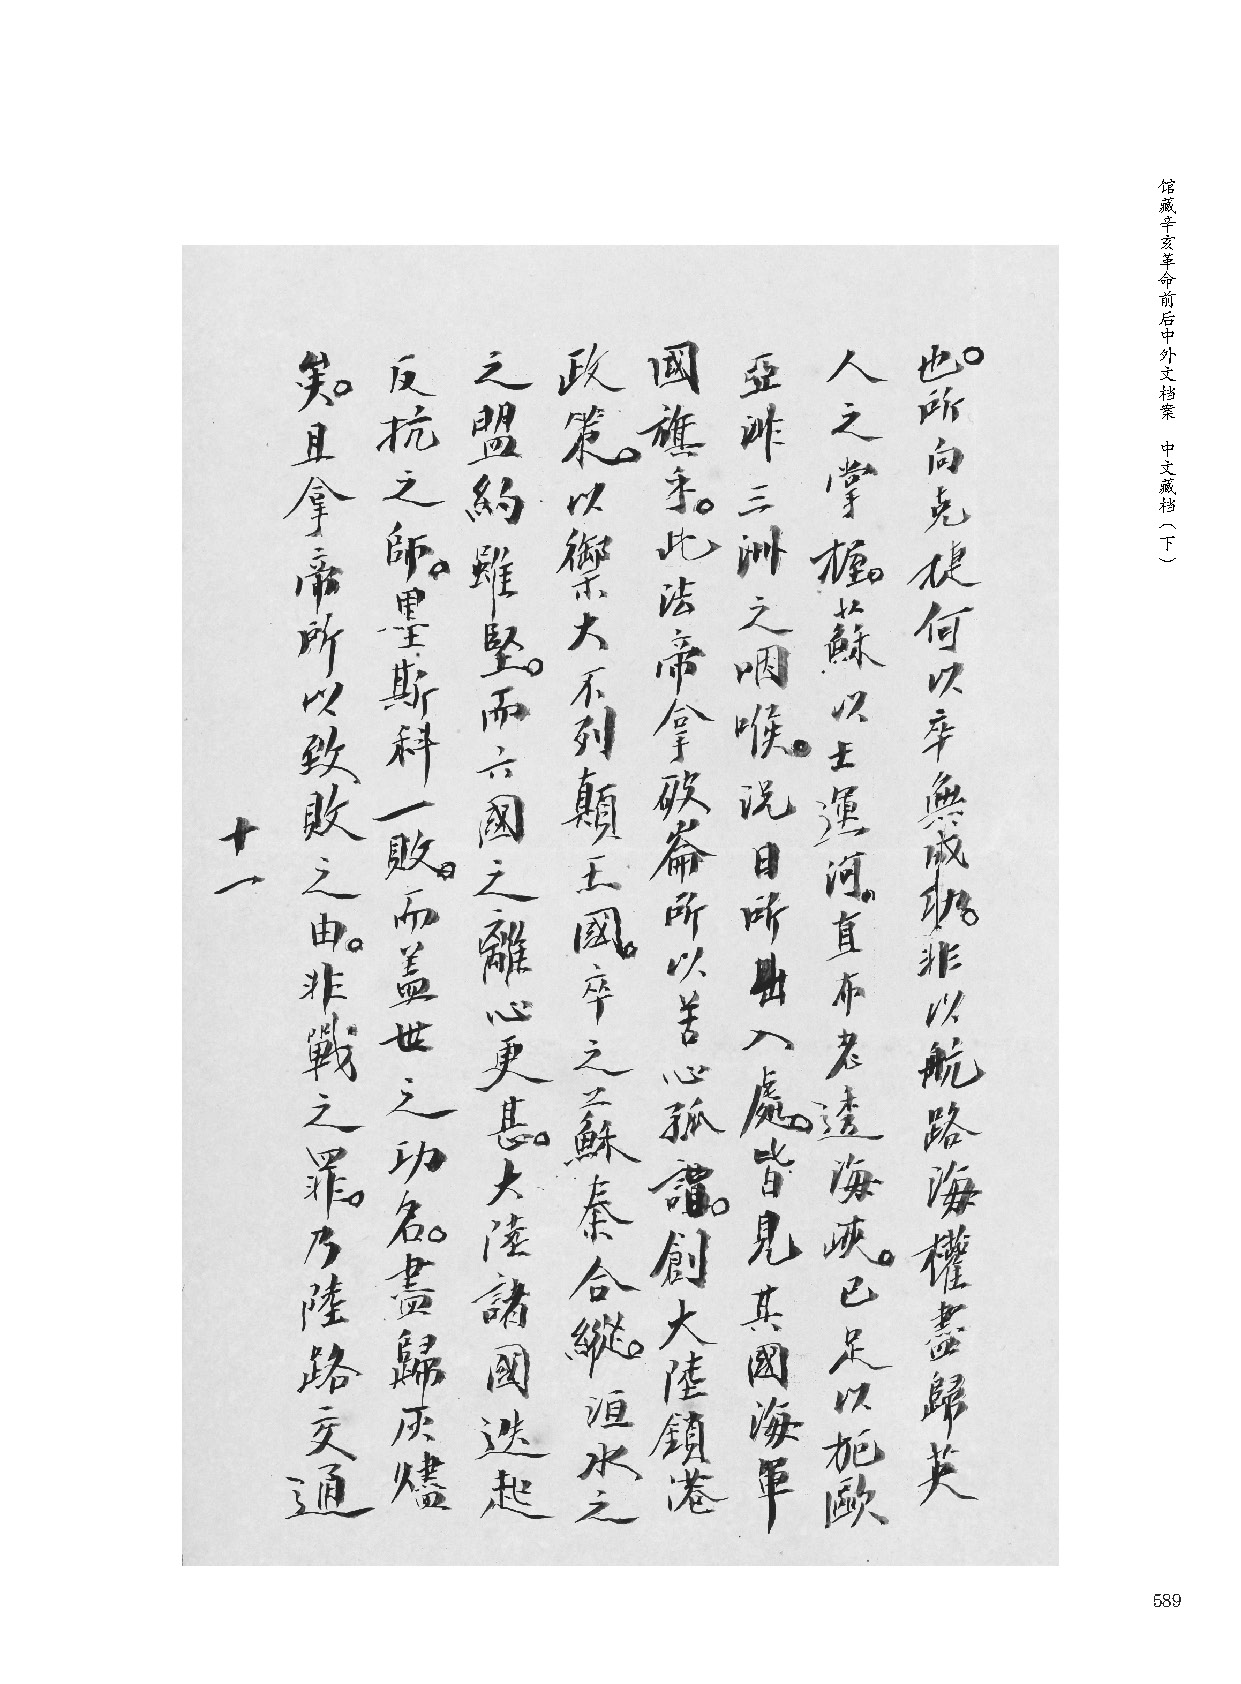 馆藏辛亥革命前后中外文档案 中文藏档（下）
也。所向克捷何以卒無成功。非以航路海權盡歸英
人之掌握。蘇以士運河。直布老透海峽。已足以扼歐
亞非三洲之咽喉。況日所出入處。皆見其國海軍
國旗乎。此法帝拿破崙所以苦心孤詣。創大陸鎖港
政策。以禦大不列顛王國。卒之蘇秦合縱。洹水之
之盟約雖堅。而六國之離心更甚。大陸諸國迭起
反抗之師。墨斯科一敗。而蓋世之功名。盡歸灰燼
矣。且拿帝所以致敗之由。非戰之罪。乃陸路交通
十一
589